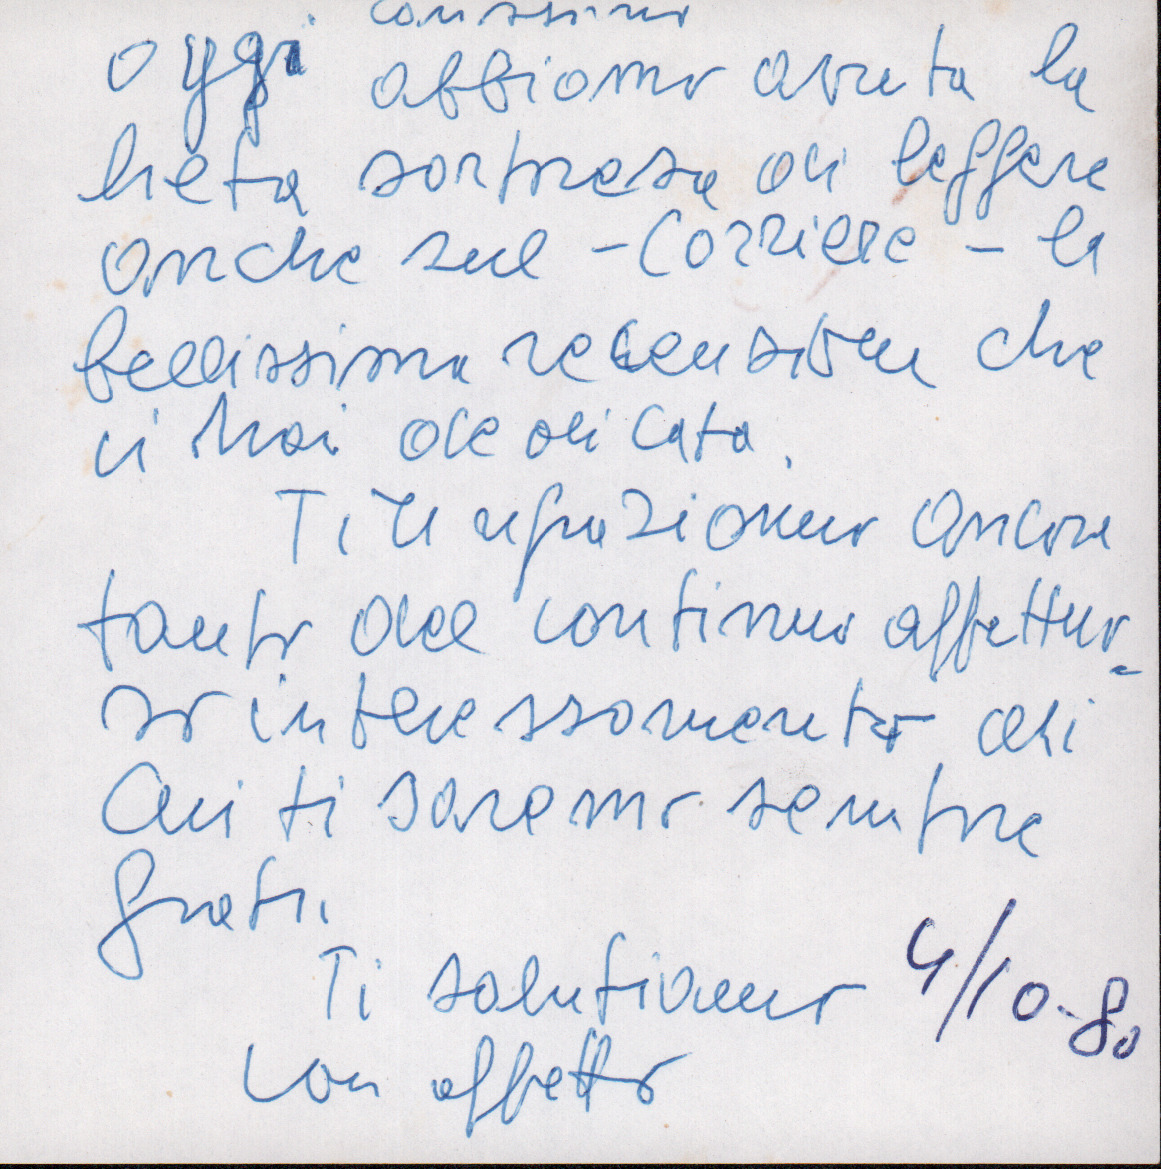 carissimo
oggi abbiamo avuta la
lieta sorpresa di leggere
anche sul - Corriere - la
bellissima recensione che
ci hai dedicata.
Ti ringraziamo ancora
tanto del continuo affettuo-
so interessamento di
cui ti saremo sempre
grati.
Ti salutiamo 4/10-80
con affetto